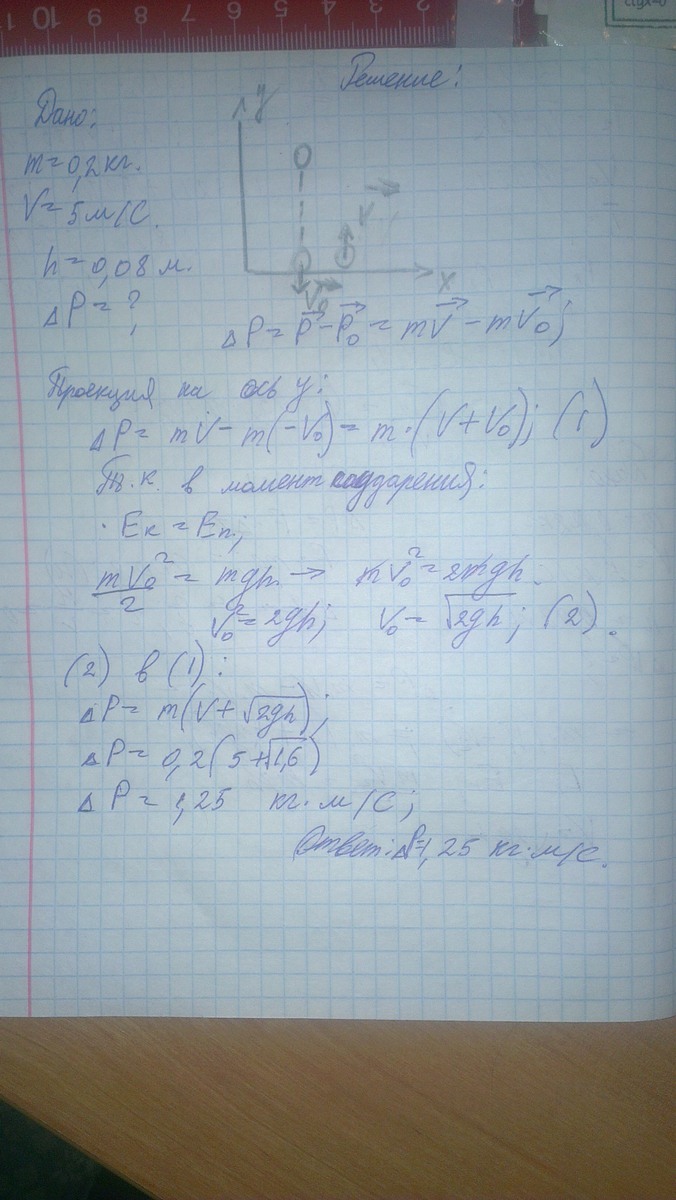 10 9 8 7 6 5 4 3 2 1
Решение:
Дано:
m=0,2 кг.
V=5 м/с.
h=0,08 м.
ΔP=?
y
V
x
V₀
ΔP=P-P₀=mV-mV₀;
Проекция на ось y:
ΔP= mV-m(-V₀)=m·(V+V₀); (1)
Т.к. в момент соударения:
Eк=Eп;
mV₀²/2=mgh → mV₀²=2mgh.
V₀²=2gh; V₀=√2gh; (2).
(2) в (1):
ΔP=m(V+√2gh);
ΔP=0,2(5+√1,6)
ΔP=1,25 кг·м/с;
Ответ: ΔP=1,25 кг·м/с.